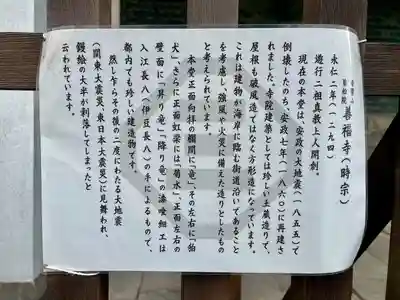 善福寺(時宗)
永仁二年(一二九四)
遊行二祖真教上人開創。
現在の本堂は、安政の大地震(一八五五)で
倒壊したのち、安政七年(一八六〇)に再建さ
れました。寺院建築としては珍しい土蔵造りで、
屋根も破風造ではなく方形造になっています。
これは建物が海岸に臨む街道沿いであること
を考慮し、強風や火災に備えた造りとしたもの
と考えられています。
本堂正面向拝の欄間に「竜」、その左右に「狛
犬」、さらに正面虹梁には「菊水」、正面左右の
壁面に「昇り竜」「降り竜」の漆喰細工は
入江長八(伊豆長八)の手によるもので、
都内でも珍しい建造物です。
然しながらその後の二度にわたる大地震
(関東大震災、東日本大震災)に見舞われ、
鏝絵の大半が剥落してしまったと
云われています。